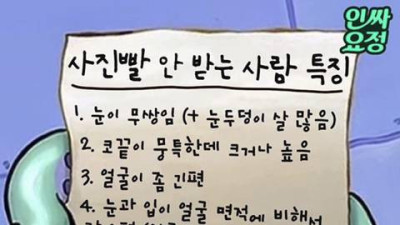 인싸
요정
사진빨 안 받는 사람 특징
1. 눈이 무쌍임 (+ 눈두덩이 살 많음)
2. 코끝이 뭉특한데 크거나 높음
3. 얼굴이 좀 긴편
4. 눈과 입이 얼굴 면적에 비해서